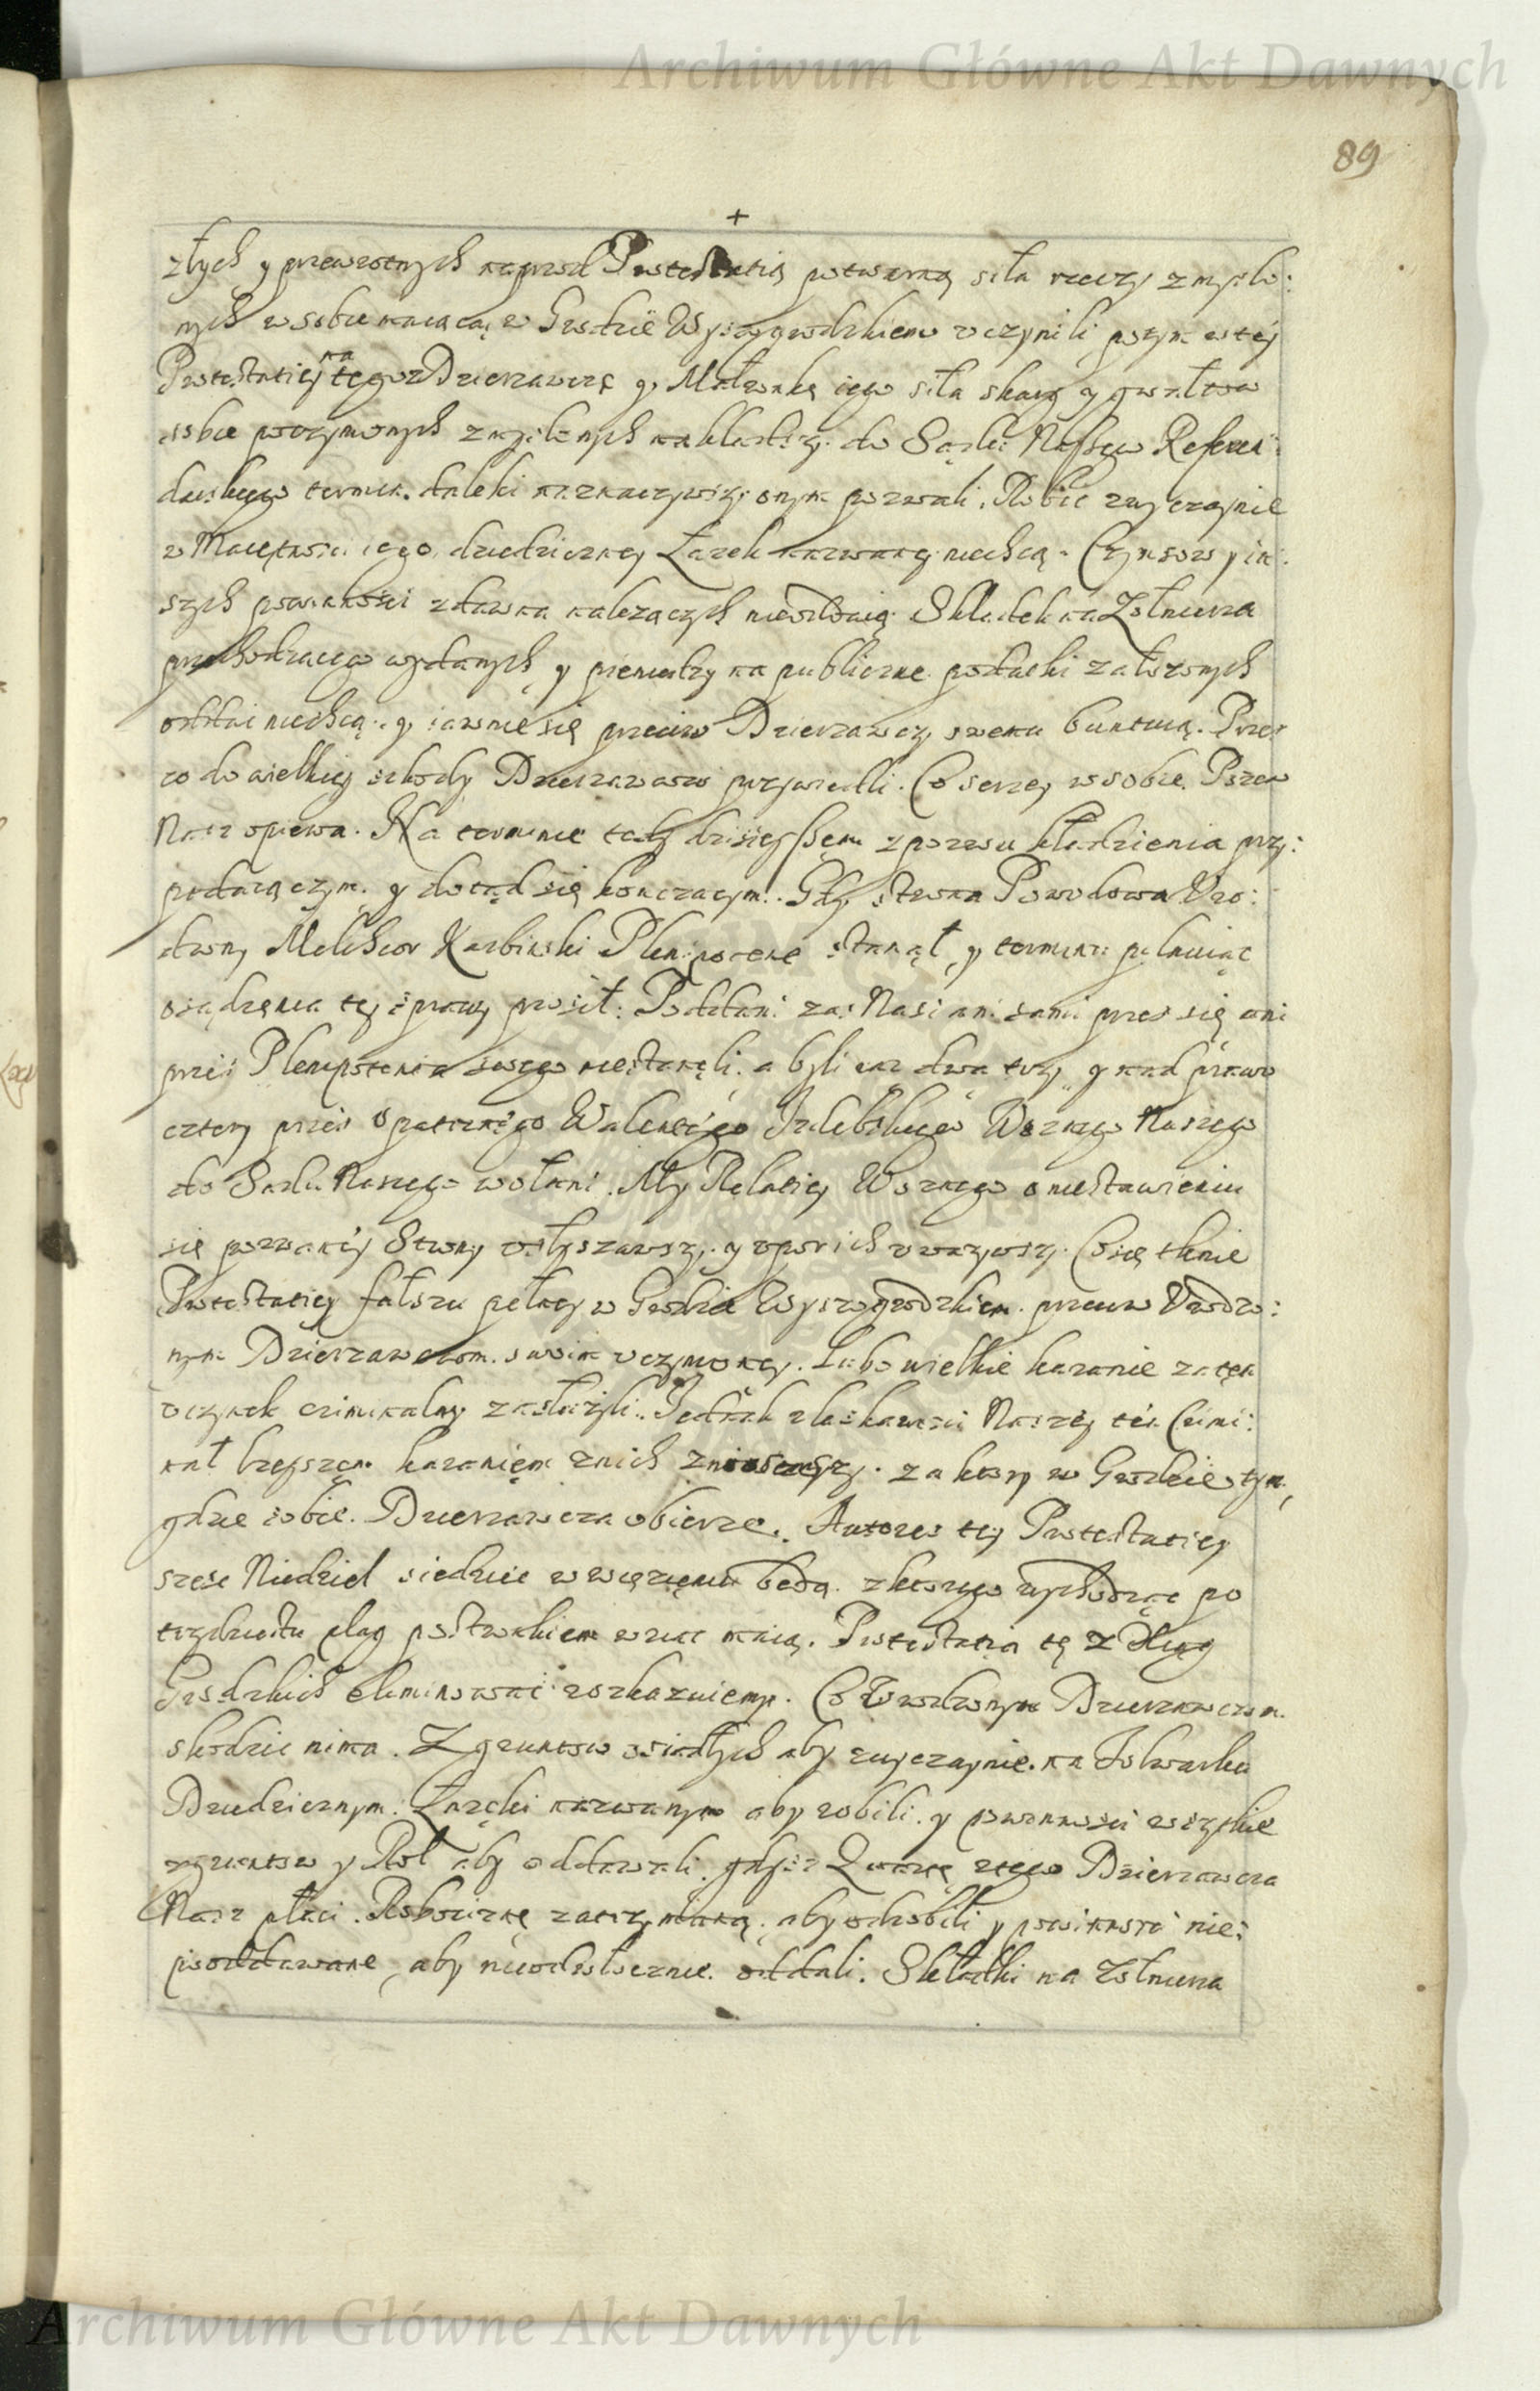 Archiwum Główne Akt Dawnych
89
+
złych y przewrotnych naprzod Protestatią potwarną siła rzeczy zmyślo:
nych w sobie maiącą w Grodzie Wyszogrodzkiem vczynili potym w tey
Protestatiey na tegoz Dzierzawcę y Małzonkę iego siła skarg y gwałtow
sobie poczynionych zmyslonych nakładszy. do Sądu Nassego Referen:
darskiego termin daleki naznaczywszy onym pozwali. Robic zwyczaynie
w Maiętnosci iego dziedziczney Łazek nazwaney niechcą. Czynszow y in:
szych powinnosci zdawna nalezących nieoddaią. Składek na Zołnierza
przechodzącego wydanych y pieniedzy na publiczne podatki załozonych
oddać niechcą. y iawnie się przeciw Dzierzawcy swemu buntuią. Przez
co do wielkiey szkody Dzierzawcow przywiedli. Co szerzey w sobie Pozew
Nasz opiewa. Na terminie tedy dzisieyssęm z pozwu kładzienia przy:
padaiączym. y dotąd się konczącym. Gdy strona Powodowa Vro:
dzony Melchior Karbinski Plenipotent stanął y terminu pilnuiąc
osądzenia tey sprawy prosił: Poddani zaś Nasi ani sami przez się ani
przez Plenipotenta swego niestanęli. a byli raz dwa trzy y nad prawo
cztery przez Opatrznego Walentego Woznego Naszego
do Sądu Naszego wołani. My Relatiey Woznego o niestawieniu
się pozwaney Strony vsłyszawszy. y vpor ich vwazywszy. Co się tknie
Protestatiey fałszu pełney w Grodzie Wyszogrodzkiem przeciw Vrodzo:
nym Dzierzawcom swoim vczynioney. Lubo wielkie karanie za ten
vczynek criminalny zasłuzyli. Jednak z łaskawosci Naszey ten Crimi:
nał lzeyszęm karaniem z nich zniosszy. za ktory w Grodzie tym
gdzie sobie Dzierzawca obierze. Autores tey Protestatiey
szesc Niedziel siedzieć w więzieniu bedą. z ktorego wychodząc po
trzydziestu plag postronkiem wziąc maią. Protestatia tę z Xiąg
Grodzkich eliminować roskazuiemy. Co Vrodzonym Dzierzawcom
skodzic nima. Z gruntow osiadłych aby zwyczaynie na Folwarku
Dziedzicznym Łazęki nazwanym aby robili. y powinnosci wszytkie
z gruntow y Rol aby oddawali. gdysz Quartę z tego Dzierzawca
Nasz płaci. Robociznę zatrzymaną. aby odrobili y powinnosci nie:
poodd­awane aby nieodwłocznie oddali. Składki na Zołnierza
Archiwum Główne Akt Dawnych